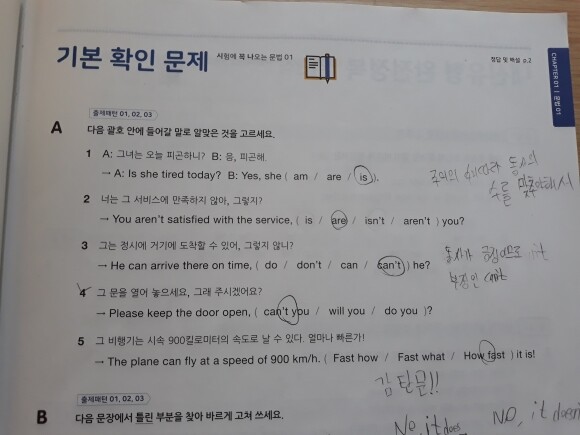 기본 확인 문제 시험에 꼭 나오는 문법 01
정답 및 해설 p.2
CHAPTER 01 | 문법 01
출제패턴 01, 02, 03
A 다음 괄호 안에 들어갈 말로 알맞은 것을 고르세요.
1 A: 그녀는 오늘 피곤하니? B: 응, 피곤해.
→ A: Is she tired today? B: Yes, she ( am / are / is ).
주어의 동사의
수를
2 너는 그 서비스에 만족하지 않아, 그렇지?
→ You aren't satisfied with the service, ( is / are / isn't / aren't ) you?
3 그는 정시에 거기에 도착할 수 있어, 그렇지 않니?
→ He can arrive there on time, ( do / don't / can / can't ) he?
동사가 긍정이므로
부정인 can't
4 그 문을 열어 놓으세요, 그래 주시겠어요?
→ Please keep the door open, ( can't you / will you / do you )?
5 그 비행기는 시속 900킬로미터의 속도로 날 수 있다. 얼마나 빠른가!
→ The plane can fly at a speed of 900 km/h. ( Fast how / Fast what / How fast ) it is!
감탄문!!
출제패턴 01, 02, 03
B 다음 문장에서 틀린 부분을 찾아 바르게 고쳐 쓰세요.
No, it does
NO, it doesn